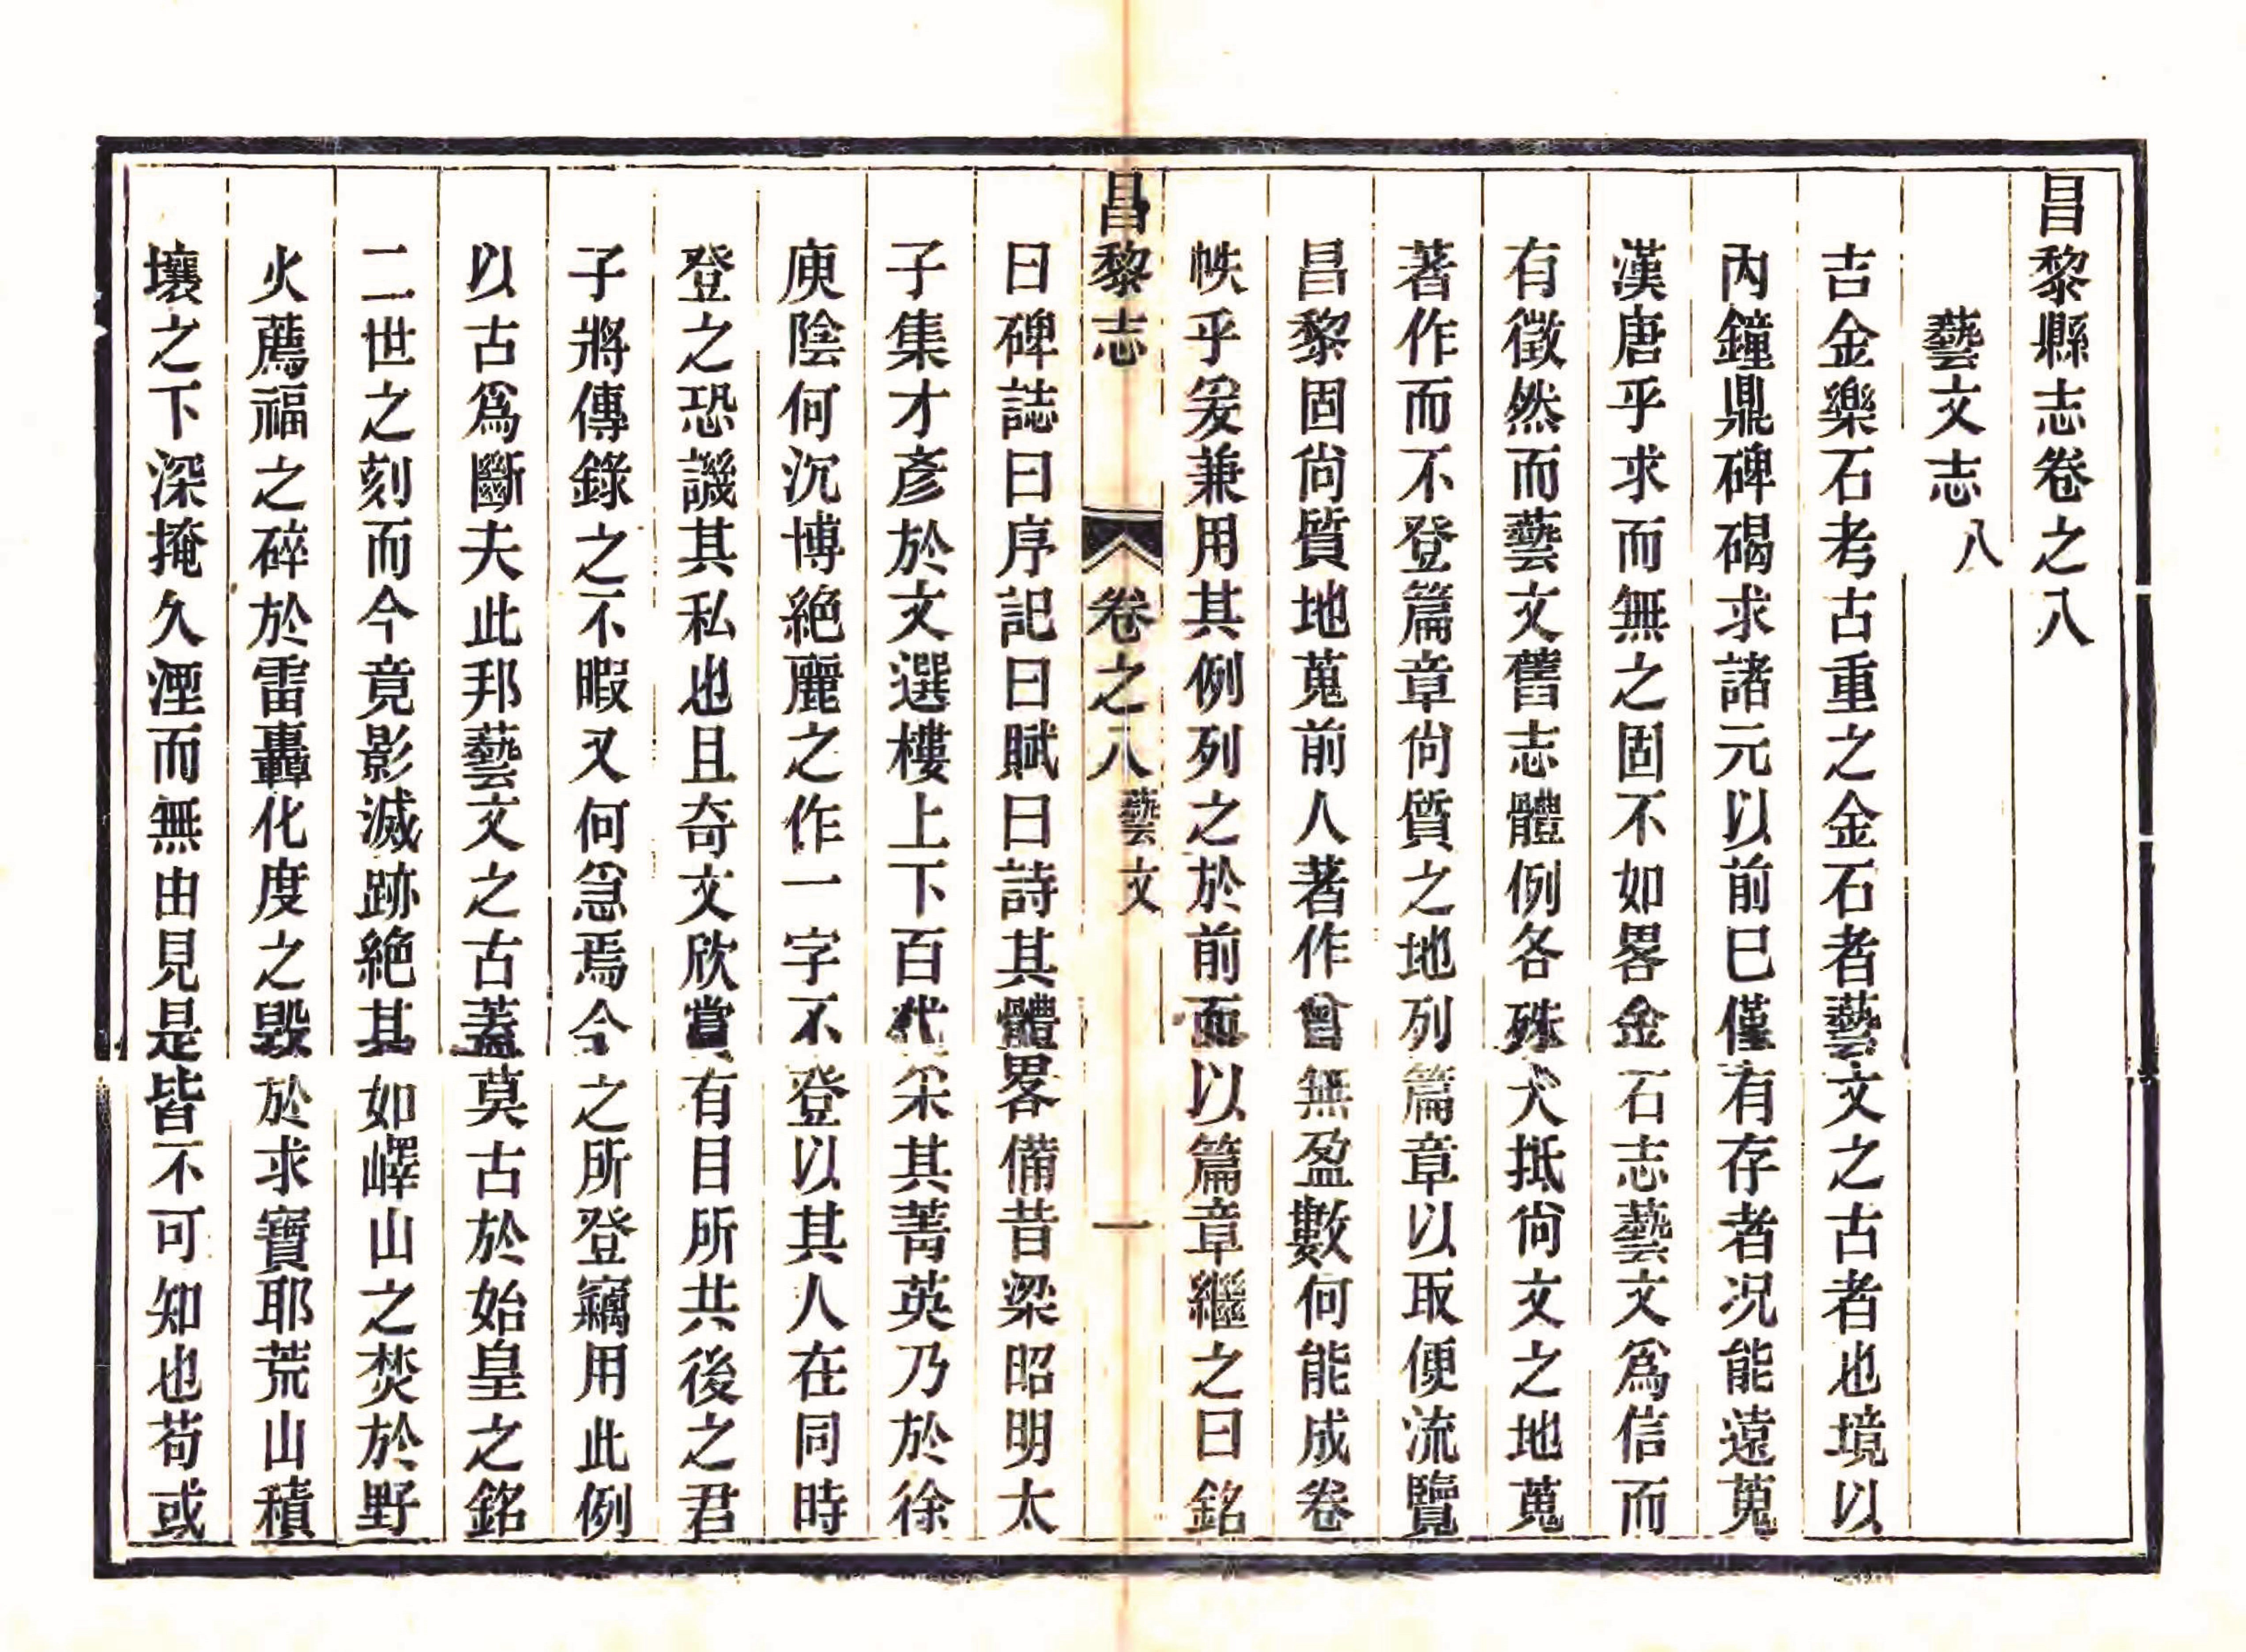 昌黎縣志卷之八
藝文志八
吉金樂石考古重之金石者藝文之古者也境以
內鐘鼎碑碣求諸元以前已僅有存者况能遠蒐
漢唐乎求而無之固不如畧金石志藝文爲信而
有徵然而藝文舊志體例各殊大抵尙文之地蒐
著作而不登篇章尙質之地列篇章以取便流覽
昌黎固尙質地蒐前人著作曾無盈數何能成卷
帙乎爰兼用其例列之於前而以篇章繼之曰銘
昌黎志 卷之八 藝文 一
曰碑誌曰序記曰賦曰詩其體畧備昔梁昭明太
子集才彥於文選樓上下百代采其菁英乃於徐
庾陰何沉博絕麗之作一字不登以其人在同時
登之恐譏其私也且奇文欣賞有目所共後之君
子將傳錄之不暇又何急焉今之所登竊用此例
以古爲斷夫此邦藝文之古蓋莫古於始皇之銘
二世之刻而今竟影滅跡絕其如嶧山之焚於野
火薦福之碎於雷轟化度之毀於求寶耶荒山積
壤之下深掩久湮而無由見是皆不可知也苟或